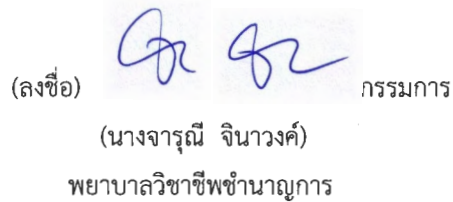 (ลงชื่อ) กรรมการ
(นางจารุณี จินาวงค์)
พยาบาลวิชาชีพชำนาญการ